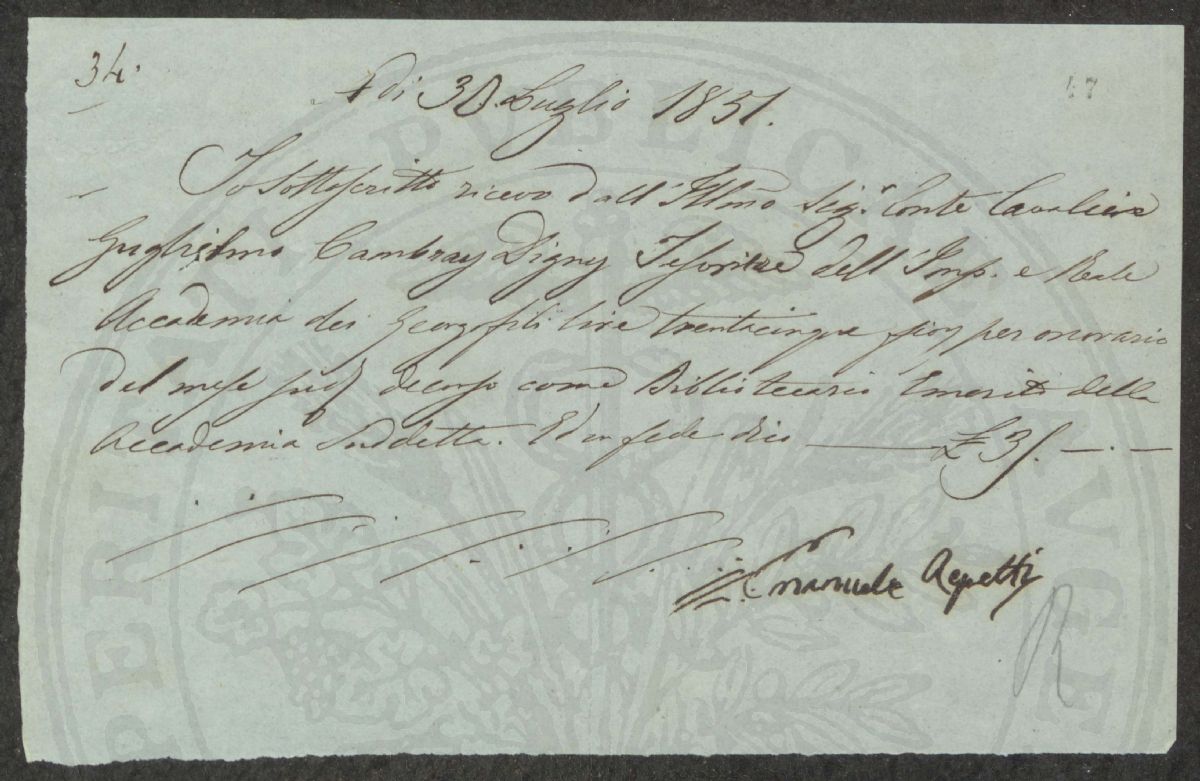 34.
47
Adi 30. Luglio 1831.
Io sottoscritto ricevo dall'Illmo Sigr. Conte Cavaliere
Guglielmo Cambray Digny Tesoriere dell'Imp. e Reale
Accademia dei Georgofili lire trentacinque fior per onorario
del mese decorso come Bibliotecario Emerito della
Accademia Suddetta. Ed in fede dico — £ 35. —.—
Emanuele Repetti
R
PROSPERITATI PUBLICAE AUGE